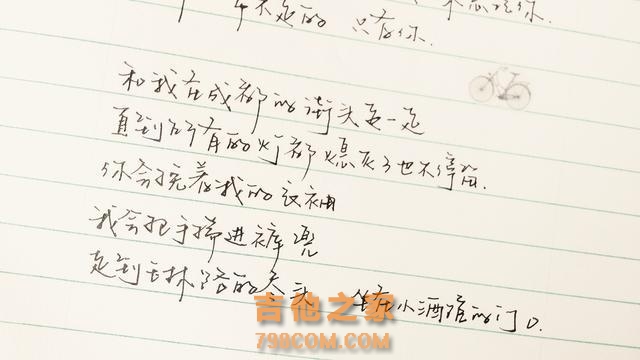 不走的 只有你.
和我在成都的街头走一走
直到所有的灯都熄灭了也不停留.
你会挽着我的衣袖
我会把手揣进裤兜
走到玉林路的尽头 坐在小酒馆的门口.
吉他之家
798COM.COM